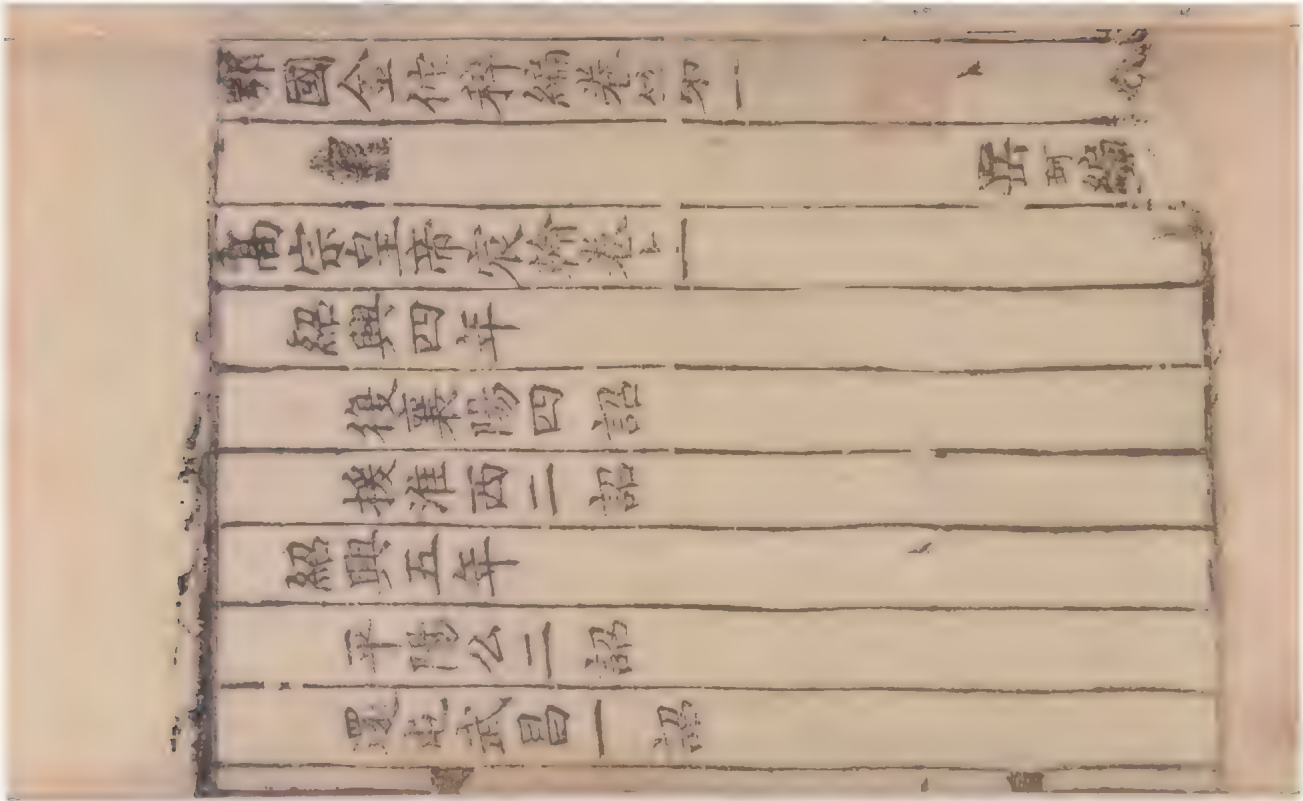 鄂國金佗稡編卷第一
岳珂編
高宗皇帝宸翰卷上
紹興四年
復襄陽四詔
援淮西二詔
紹興五年
平楊么二詔
還屯武昌一詔